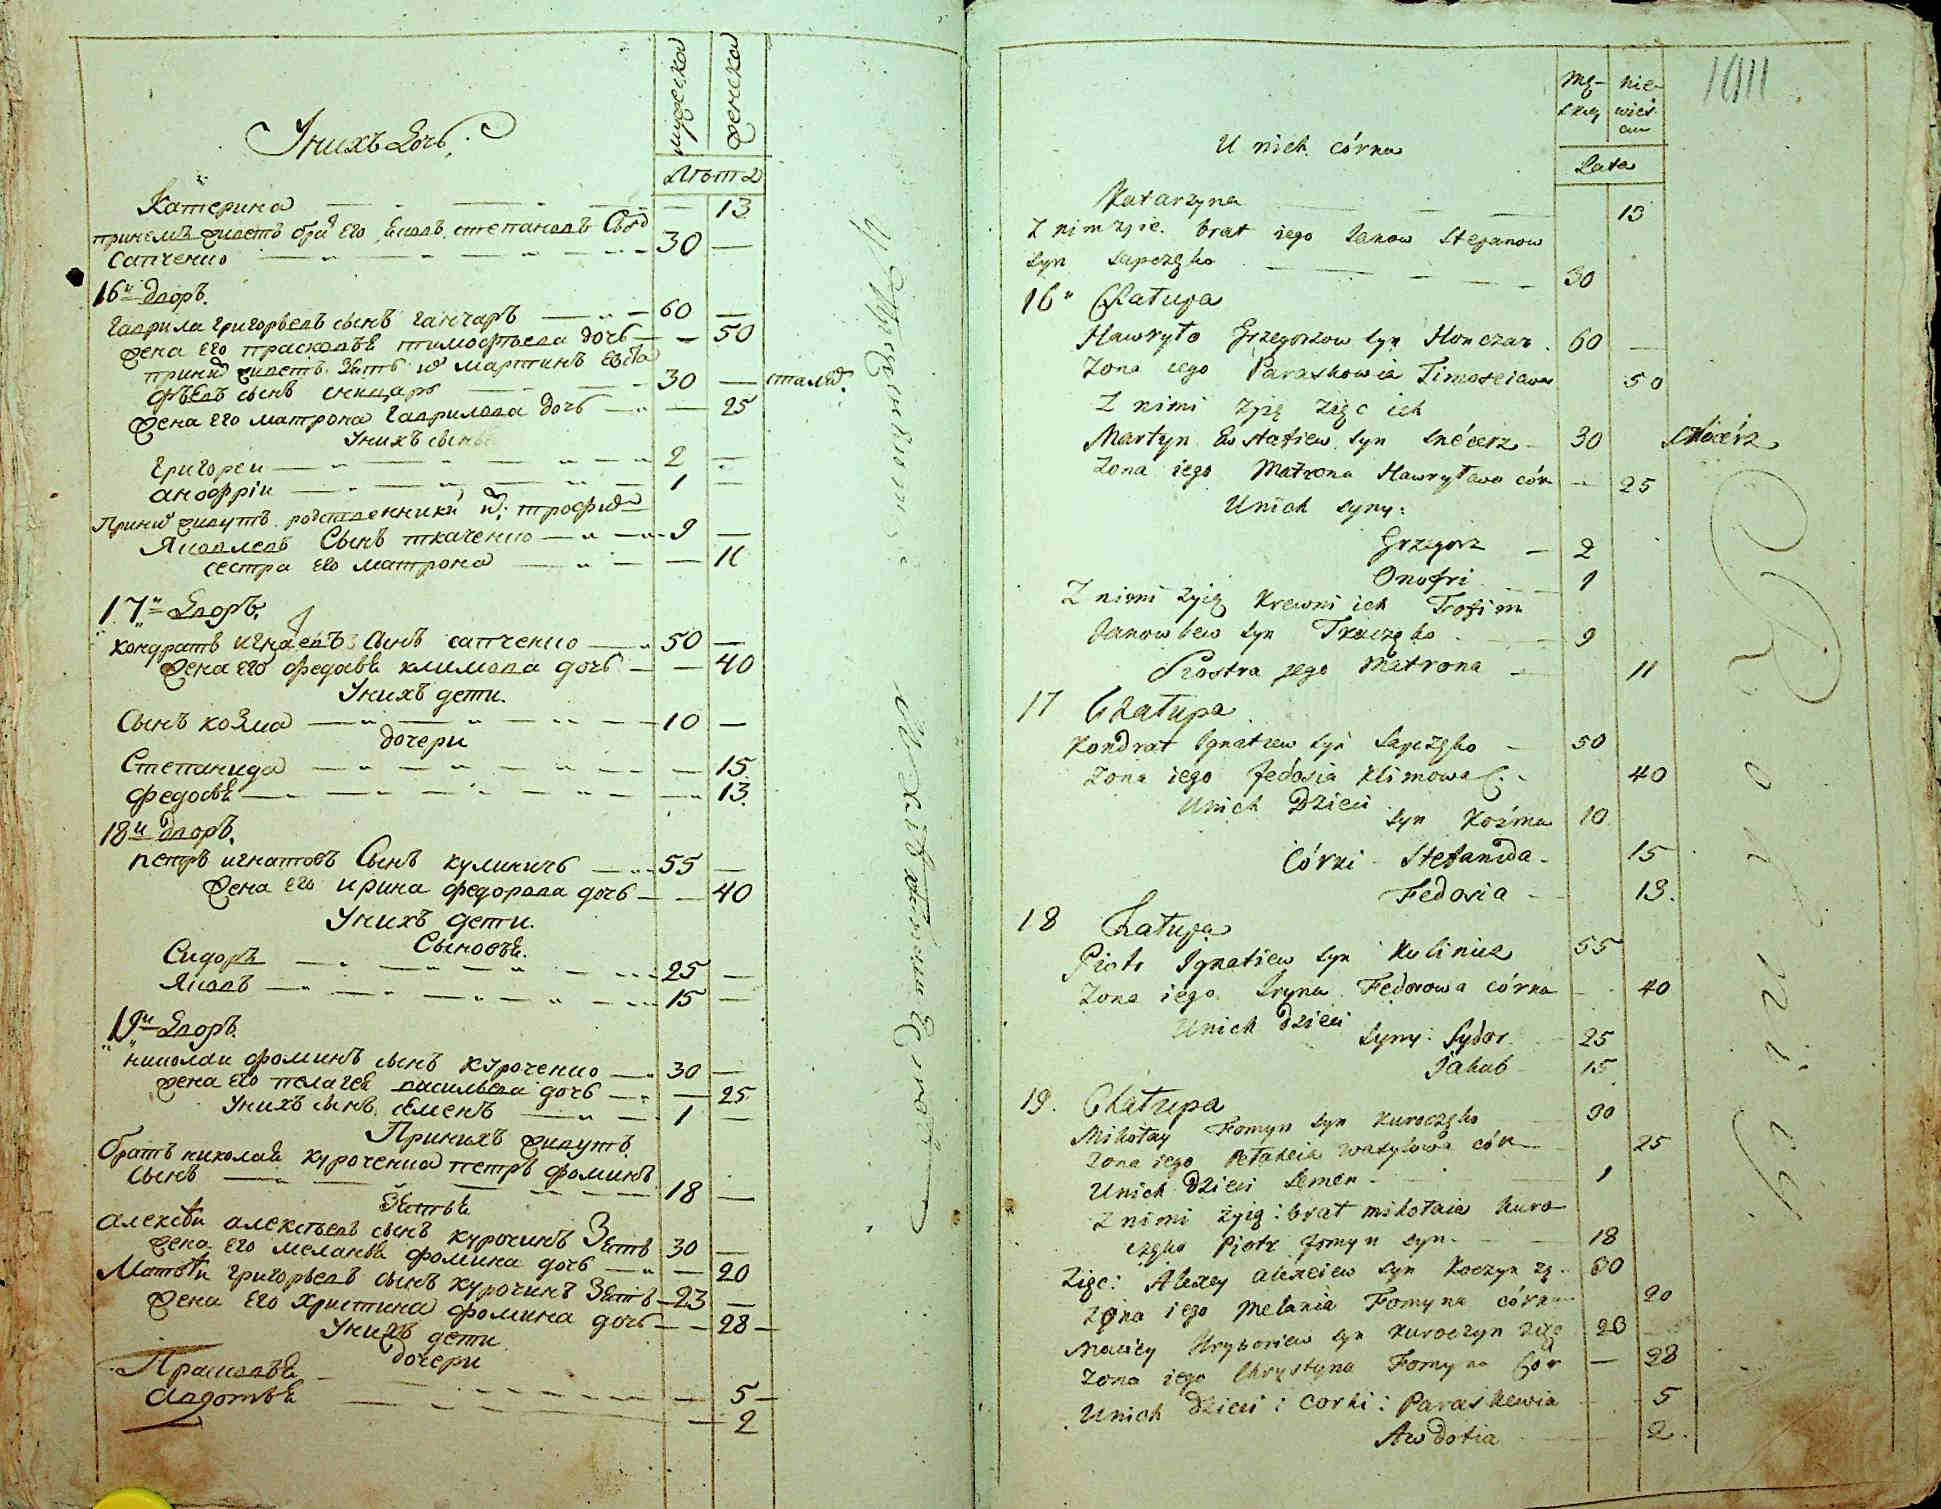 мужеска
женска
У нихъ дочь
лѣта
Катерина 13
при немъ живетъ братъ его Яковъ степановъ сынъ
сапченко 30
16й дворъ.
гаврила григорьевъ сынъ ганчаръ 60
жена его прасковья тимофѣева дочь 50
живетъ зять их мартинъ евста
фѣевъ сынъ сницарь 30
жена его матрона гаврилова дочь 25
У нихъ сыновья
григорей 2
анофрiи 1
При них живутъ родственники их трофим
Яковлевъ сынъ ткаченко 9
сестра его матрона 11
17й дворъ.
кондратъ игнатевъ сынъ сапченко 50
жена его федосья климова дочь 40
У нихъ дети.
Сынъ козма 10
дочери
Степанида 15
федосья 13
18й дворъ.
петръ игнатовъ сынъ кулиничъ 55
жена его ирина федорова дочь 40
У нихъ дети.
Сыновья.
Сидоръ 25
Яковъ 15
19й дворъ.
николаи фоминъ сынъ куроченко 30
жена его пелагея васильева дочь 25
У нихъ сынъ семенъ 1
При нихъ живутъ
братъ николая куроченка петръ фоминъ
сынъ 18
Зятья
алексѣи алексѣевъ сынъ курочинъ Зять 30
жена его меланья фомина дочь 20
Матвѣи григорьевъ сынъ курочинъ Зять 23
жена его христина фомина дочь 28
У нихъ дети
дочери
Прасковья 5
авдотья 2
Mę-
skuy
nie-
wieś
cia
Lata
U nich córka
Katarzyna 13
Z nim żyie brat iego Jakow Stepanow
Syn Sapczęko 30
16 Chałupa
Hawryło Grzegorzow syn Honczar 60
Zona iego Paraskowia Timofeiewa 50
Z nimi żyią zięc ich
Martyn Ewstafiew syn Snécerz 30
Zona iego Matrona Hawryłowa cór 25
U nich syny:
Grzegorz 2
Onofri 1
Z nimi żyią krewni ich Trofim
Jakowlew syn Tkaczęko 9
Siostra jego Matrona 11
17 Chałupa
Kondrat Ignatiew syn Sapczęko 50
Zona iego Fedosia Klimowa C. 40
U nich Dzieci Syn Koźma 10
Córki Stefanida 15
Fedosia 13.
18 Chałupa
Piotr Ignatiew syn Kulinicz 55
Zona iego Iryna Fedorowa córka 40
U nich dzieci Syny: Sydor 25
Jakub 15
19. Chałupa
Mikołay Fomyn syn Kuroczęko 30
Zona iego Pełaheia Wasylowa córka 25
U nich Dzieci Semen 1
Z nimi żyią: brat mikołaia Kuro
częko Piotr Fomyn syn 18
Zięc: Alexey Alexeiew syn 30
Zona iego Melania Fomyna córka 20
Maciey Hryhoriew syn Kuroczyn Zięc 23
Zona iego Chrystyna Fomyna Cór 28
U nich Dzieci: Corki: Paraskewia 5
Awdotia 2.